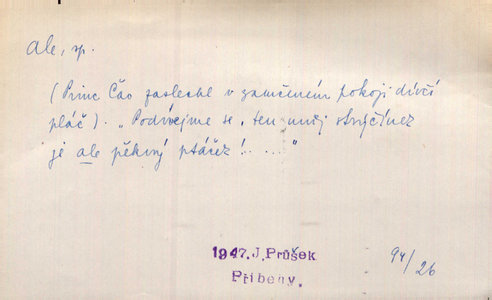 ale, sp.
(Princ Čao zaslechl v zamčeném pokoji dívčí
pláč). „Podívejme se, ten můj strýčínek
je ale pěkný ptáček!....."
1947. J. Průšek
Příběhy.
94/26